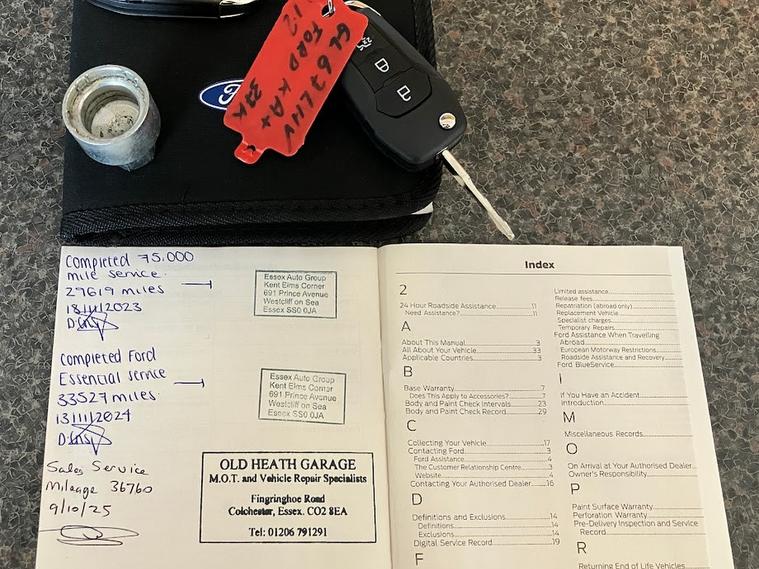 GL67LHV
1.2
FORD KA+
37K
Ford
Completed 75.000
mile service.
29619 miles
18/11/2023
Essex Auto Group
Kent Elms Corner
691 Prince Avenue
Westcliff on Sea
Essex SS0 0JA
Completed Ford
Essential service
33527 miles.
13/11/2024
Essex Auto Group
Kent Elms Corner
691 Prince Avenue
Westcliff on Sea
Essex SS0 0JA
Sales Service
Mileage 36760
9/10/25
OLD HEATH GARAGE
M.O.T. and Vehicle Repair Specialists
Fingringhoe Road
Colchester, Essex. CO2 8EA
Tel: 01206 791291
Index
2
24 Hour Roadside Assistance.....11
Need Assistance?.....11
A
About This Manual.....3
All About Your Vehicle.....33
Applicable Countries.....3
B
Base Warranty.....7
Does This Apply to Accessories?.....7
Body and Paint Check Intervals.....23
Body and Paint Check Record.....29
C
Collecting Your Vehicle.....17
Contacting Ford.....3
Ford Assistance.....4
The Customer Relationship Centre.....3
Website.....4
Contacting Your Authorised Dealer.....16
D
Definitions and Exclusions.....14
Definitions.....14
Exclusions.....14
Digital Service Record.....19
F
Limited assistance
Release fees
Repatriation (abroad only)
Replacement Vehicle
Specialist charges
Temporary Repairs
Ford Assistance When Travelling
Abroad
European Motorway Restrictions
Roadside Assistance and Recovery
Ford BlueService
I
If You Have an Accident
Introduction
M
Miscellaneous Records
O
On Arrival at Your Authorised Dealer
Owner's Responsibility
P
Paint Surface Warranty
Perforation Warranty
Pre-Delivery Inspection and Service
Record
R
Returning End of Life Vehicles